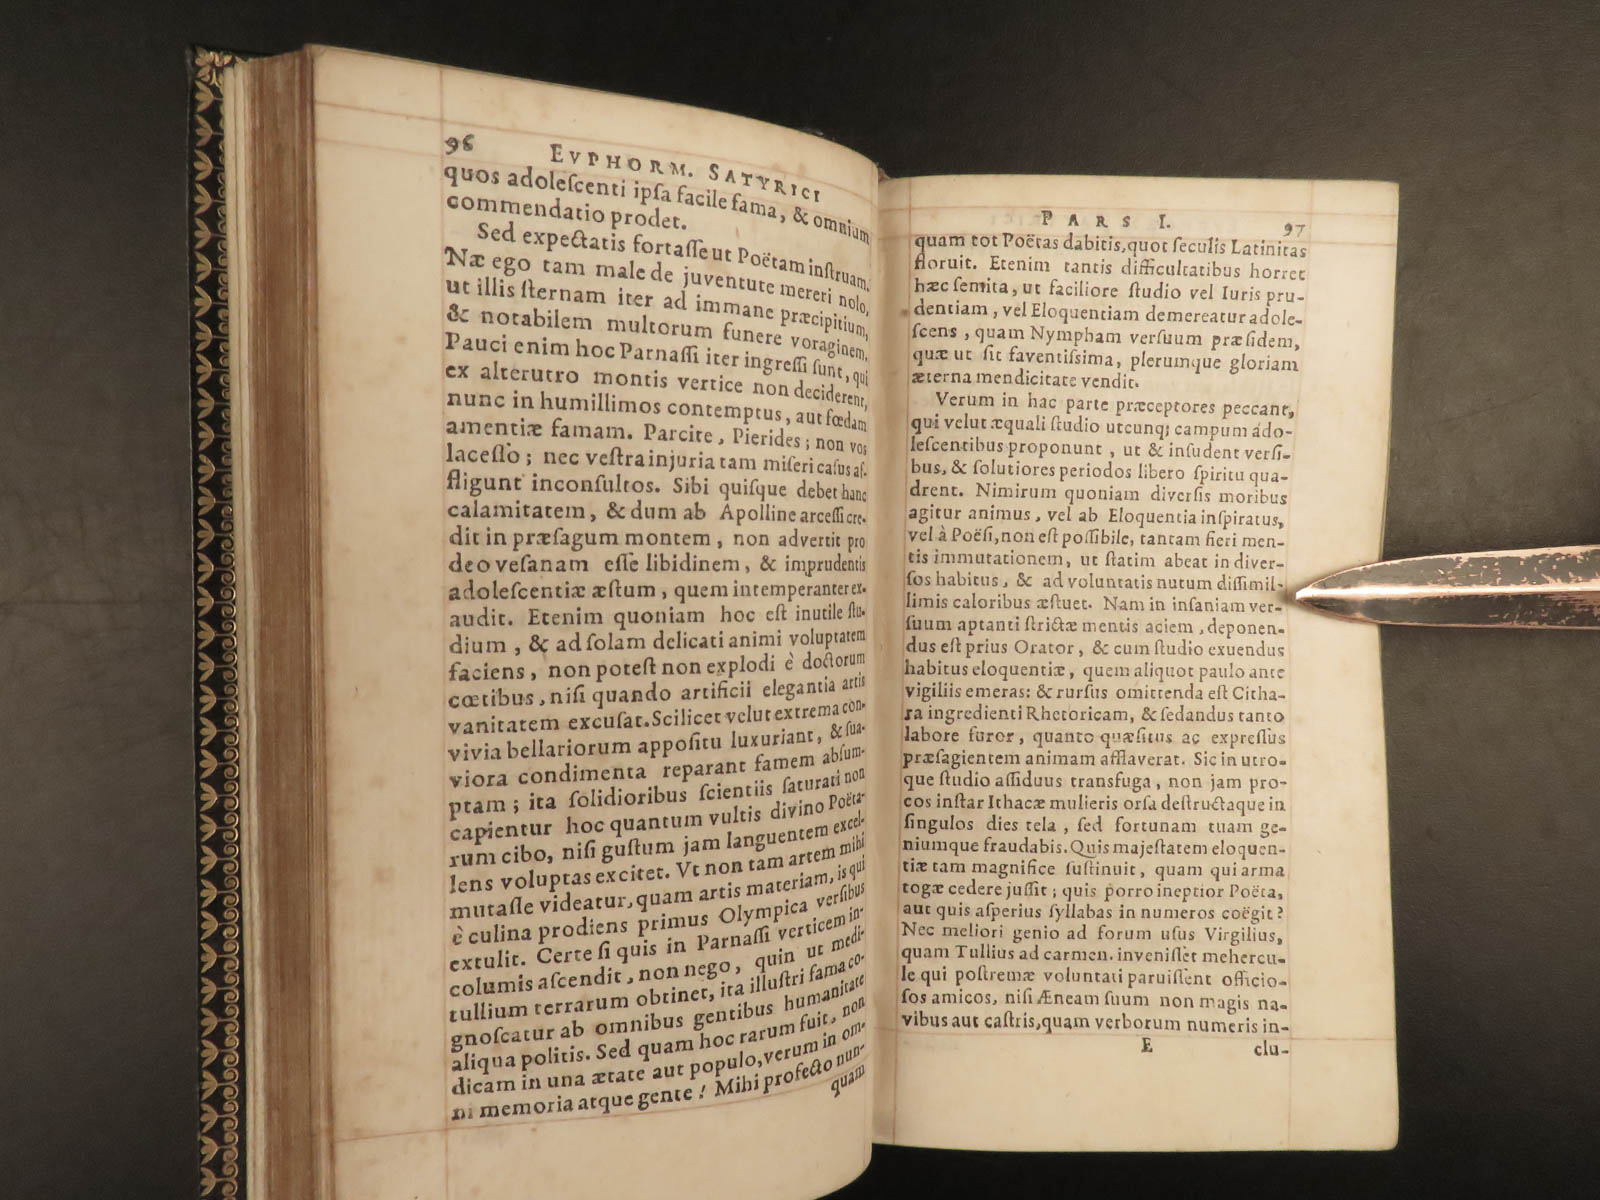 96 EVPHORM. SATYRICI
quos adoleſcenti ipſa facile fama, & omnium
commendatio prodet.
Sed expectatis fortaſſe ut Poëtam inſtruam.
Næ ego tam male de juventute mereri nolo,
ut illis ſternam iter ad immane præcipitium,
& notabilem multorum funere voraginem,
Pauci enim hoc Parnaſſi iter ingreſſi ſunt, qui
ex alterutro montis vertice non deciderent,
nunc in humillimos contemptus, aut fœdam
amentiæ famam. Parcite, Pierides; non vos
laceſſo; nec veſtra injuria tam miſeri caſus af-
fligunt inconſultos. Sibi quiſque debet hanc
calamitatem, & dum ab Apolline arceſſi cre-
dit in præſagum montem, non advertit pro
deo veſanam eſſe libidinem, & imprudentis
adoleſcentiæ æſtum, quem intemperanter ex-
audit. Etenim quoniam hoc eſt inutile ſtu-
dium, & ad ſolam delicati animi voluptatem
faciens, non poteſt non explodi è doctorum
cœtibus, niſi quando artificii elegantia artis
vanitatem excuſat. Scilicet velut extrema con-
vivia bellariorum appoſitu luxuriant, & ſua-
viora condimenta reparant famem abſum-
ptam; ita ſolidioribus ſcientiis ſaturati non
capientur hoc quantum vultis divino Poëta-
rum cibo, niſi guſtum jam languentem excel-
lens voluptas excitet. Vt non tam artem mihi
mutaſſe videatur, quam artis materiam, is qui
è culina prodiens primus Olympica verſibus
extulit. Certe ſi quis in Parnaſſi verticem in-
columis aſcendit, non nego, quin ut medi-
tullium terrarum obtinet, ita illuſtri fama co-
gnoſcatur ab omnibus gentibus humanitate
aliqua politis. Sed quam hoc rarum fuit, non
dicam in una ætate aut populo, verum in om-
ni memoria atque gente! Mihi profecto nun-
quam
PARS I. 97
quam tot Poëtas dabitis, quot ſeculis Latinitas
floruit. Etenim tantis difficultatibus horret
hæc ſemita, ut faciliore ſtudio vel Iuris pru-
dentiam, vel Eloquentiam demereatur adole-
ſcens, quam Nympham verſuum præſidem,
quæ ut ſit faventiſſima, plerumque gloriam
æterna mendicitate vendit.
Verum in hac parte præceptores peccant,
qui velut æquali ſtudio utcunq; campum ado-
leſcentibus proponunt, ut & inſudent verſi-
bus, & ſolutiores periodos libero ſpiritu qua-
drent. Nimirum quoniam diverſis moribus
agitur animus, vel ab Eloquentia inſpiratus,
vel à Poëſi, non eſt poſſibile, tantam fieri men-
tis immutationem, ut ſtatim abeat in diver-
ſos habitus, & ad voluntatis nutum diſſimil-
limis caloribus æſtuet. Nam in inſaniam ver-
ſuum aptanti ſtrictæ mentis aciem, deponen-
dus eſt prius Orator, & cum ſtudio exuendus
habitus eloquentiæ, quem aliquot paulo ante
vigiliis emeras: & rurſus omittenda eſt Citha-
ra ingredienti Rhetoricam, & ſedandus tanto
labore furor, quanto quæſitus ac expreſſus
præſagientem animam afflaverat. Sic in utro-
que ſtudio aſſiduus transfuga, non jam pro-
cos inſtar Ithacæ mulieris orſa deſtructaque in
ſingulos dies tela, ſed fortunam tuam ge-
niumque fraudabis. Quis majeſtatem eloquen-
tiæ tam magnifice ſuſtinuit, quam qui arma
togæ cedere juſſit; quis porro ineptior Poëta,
aut quis aſperius ſyllabas in numeros coëgit?
Nec meliori genio ad forum uſus Virgilius,
quam Tullius ad carmen. inveniſſet mehercu-
le qui poſtremæ voluntati paruiſſent officio-
ſos amicos, niſi Æneam ſuum non magis na-
vibus aut caſtris, quam verborum numeris in-
E clu-